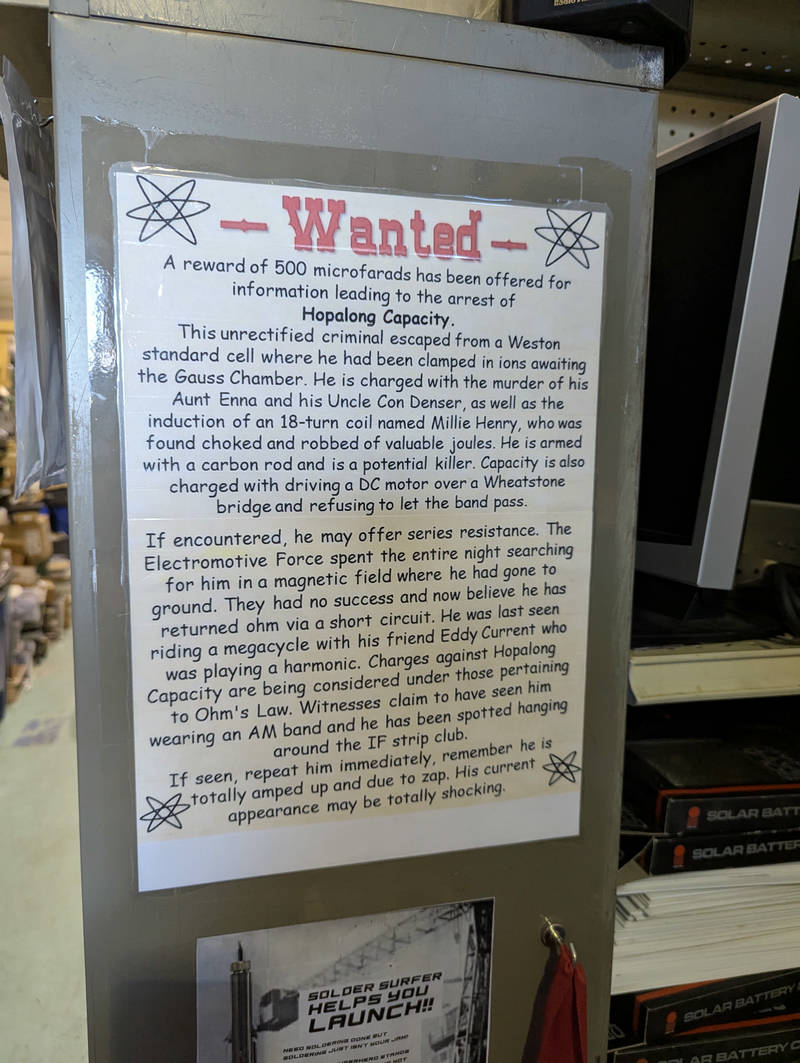 Wanted
A reward of 500 microfarads has been offered for
information leading to the arrest of
Hopalong Capacity.
This unrectified criminal escaped from a Weston
standard cell where he had been clamped in ions awaiting
the Gauss Chamber. He is charged with the murder of his
Aunt Enna and his Uncle Con Denser, as well as the
induction of an 18-turn coil named Millie Henry, who was
found choked and robbed of valuable joules. He is armed
with a carbon rod and is a potential killer. Capacity is also
charged with driving a DC motor over a Wheatstone
bridge and refusing to let the band pass.
If encountered, he may offer series resistance. The
Electromotive Force spent the entire night searching
for him in a magnetic field where he had gone to
ground. They had no success and now believe he has
returned ohm via a short circuit. He was last seen
riding a megacycle with his friend Eddy Current who
was playing a harmonic. Charges against Hopalong
Capacity are being considered under those pertaining
to Ohm's Law. Witnesses claim to have seen him
wearing an AM band and he has been spotted hanging
around the IF strip club.
If seen, repeat him immediately, remember he is
totally amped up and due to zap. His current
appearance may be totally shocking.
SOLDER SURFER
HELPS YOU
LAUNCH!!
NEED SOLDERING DONE BUT
SOLDERING JUST ISN'T YOUR JAM?
SUPERHERO STANDS
SOLAR BATT
SOLAR BATTER
SOLAR BATTERY
SOLAR BATTERY C